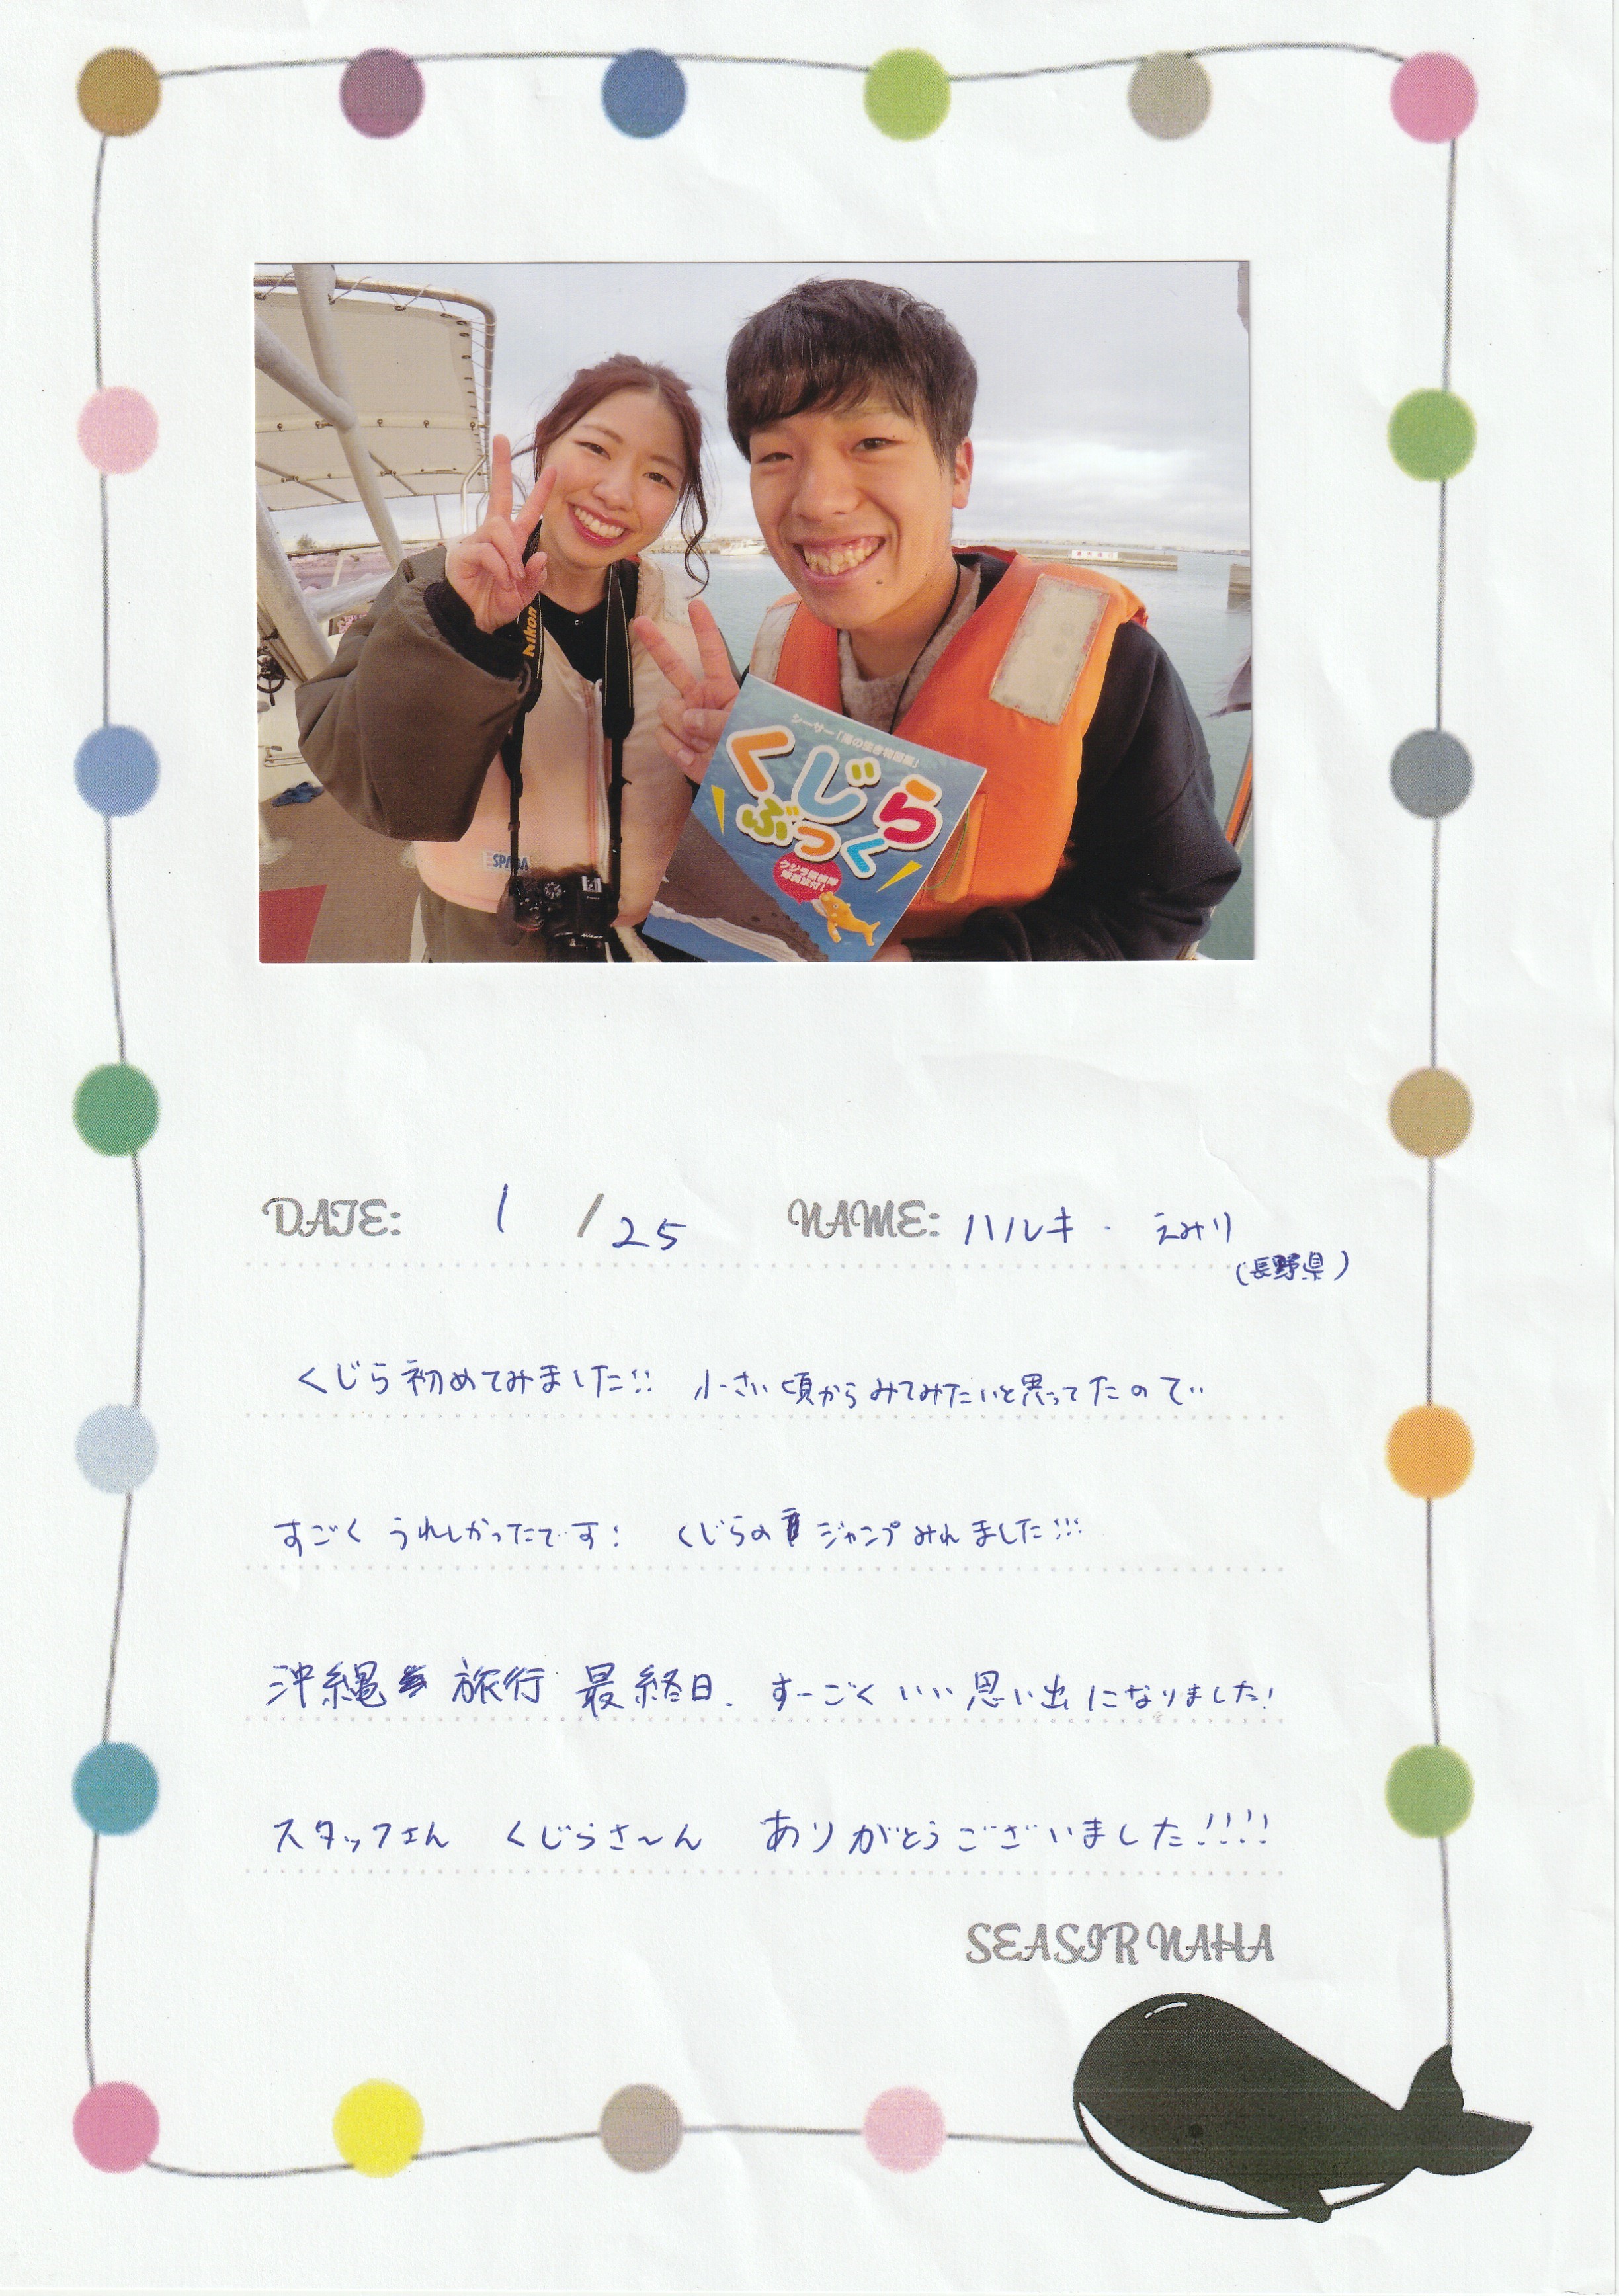 Nikon
シーサー「海の生き物図鑑」
くじら
ぶっく
クジラ探検隊
ESPADA
DATE: 1 / 25 NAME: ハルキ・えみり
(長野県)
くじら初めてみました!! 小さい頃からみてみたいと思ってたので
すごくうれしかったです! くじらのジャンプみれました!!!
沖縄 旅行 最終日、すーごくいい思い出になりました!
スタッフさん くじらさ〜ん ありがとうございました!!!!
SEASIR NAHA